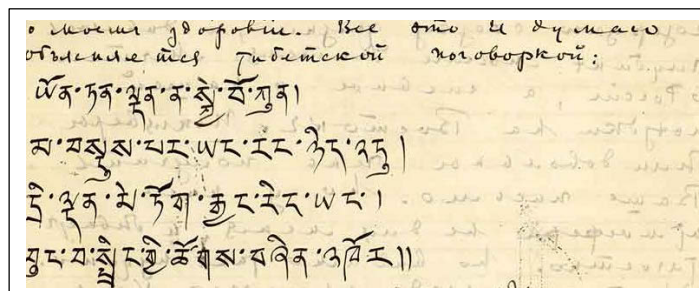 о моемъ здоровіи. Все это я думаю
объясняется тибетской поговоркой:
ཡོན་ཏན་ལྡན་ན་སྐྱེ་བོ་ཀུན།
མ་བསྡུས་པར་ཡང་རང་ཉིད་འདུ།
དྲི་ལྡན་མེ་ཏོག་རྒྱང་རིང་ཡང་།
བུང་བ་སྤྲིང་གྱི་ཚོགས་བཞིན་འཁོར།།